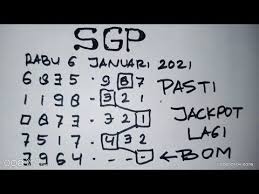 SGP
RABU 6 JANUARI 2021
6835 · 987 PASTI
1198 · 321 JACKPOT
0873 · 321 LAGI
7517 · 432
7964 · --- ← BOM